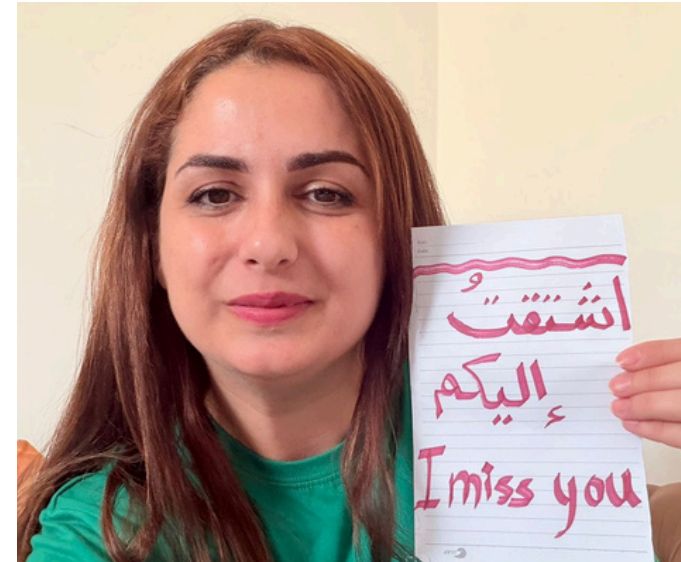 اشتقتُ
إليكم
I miss you